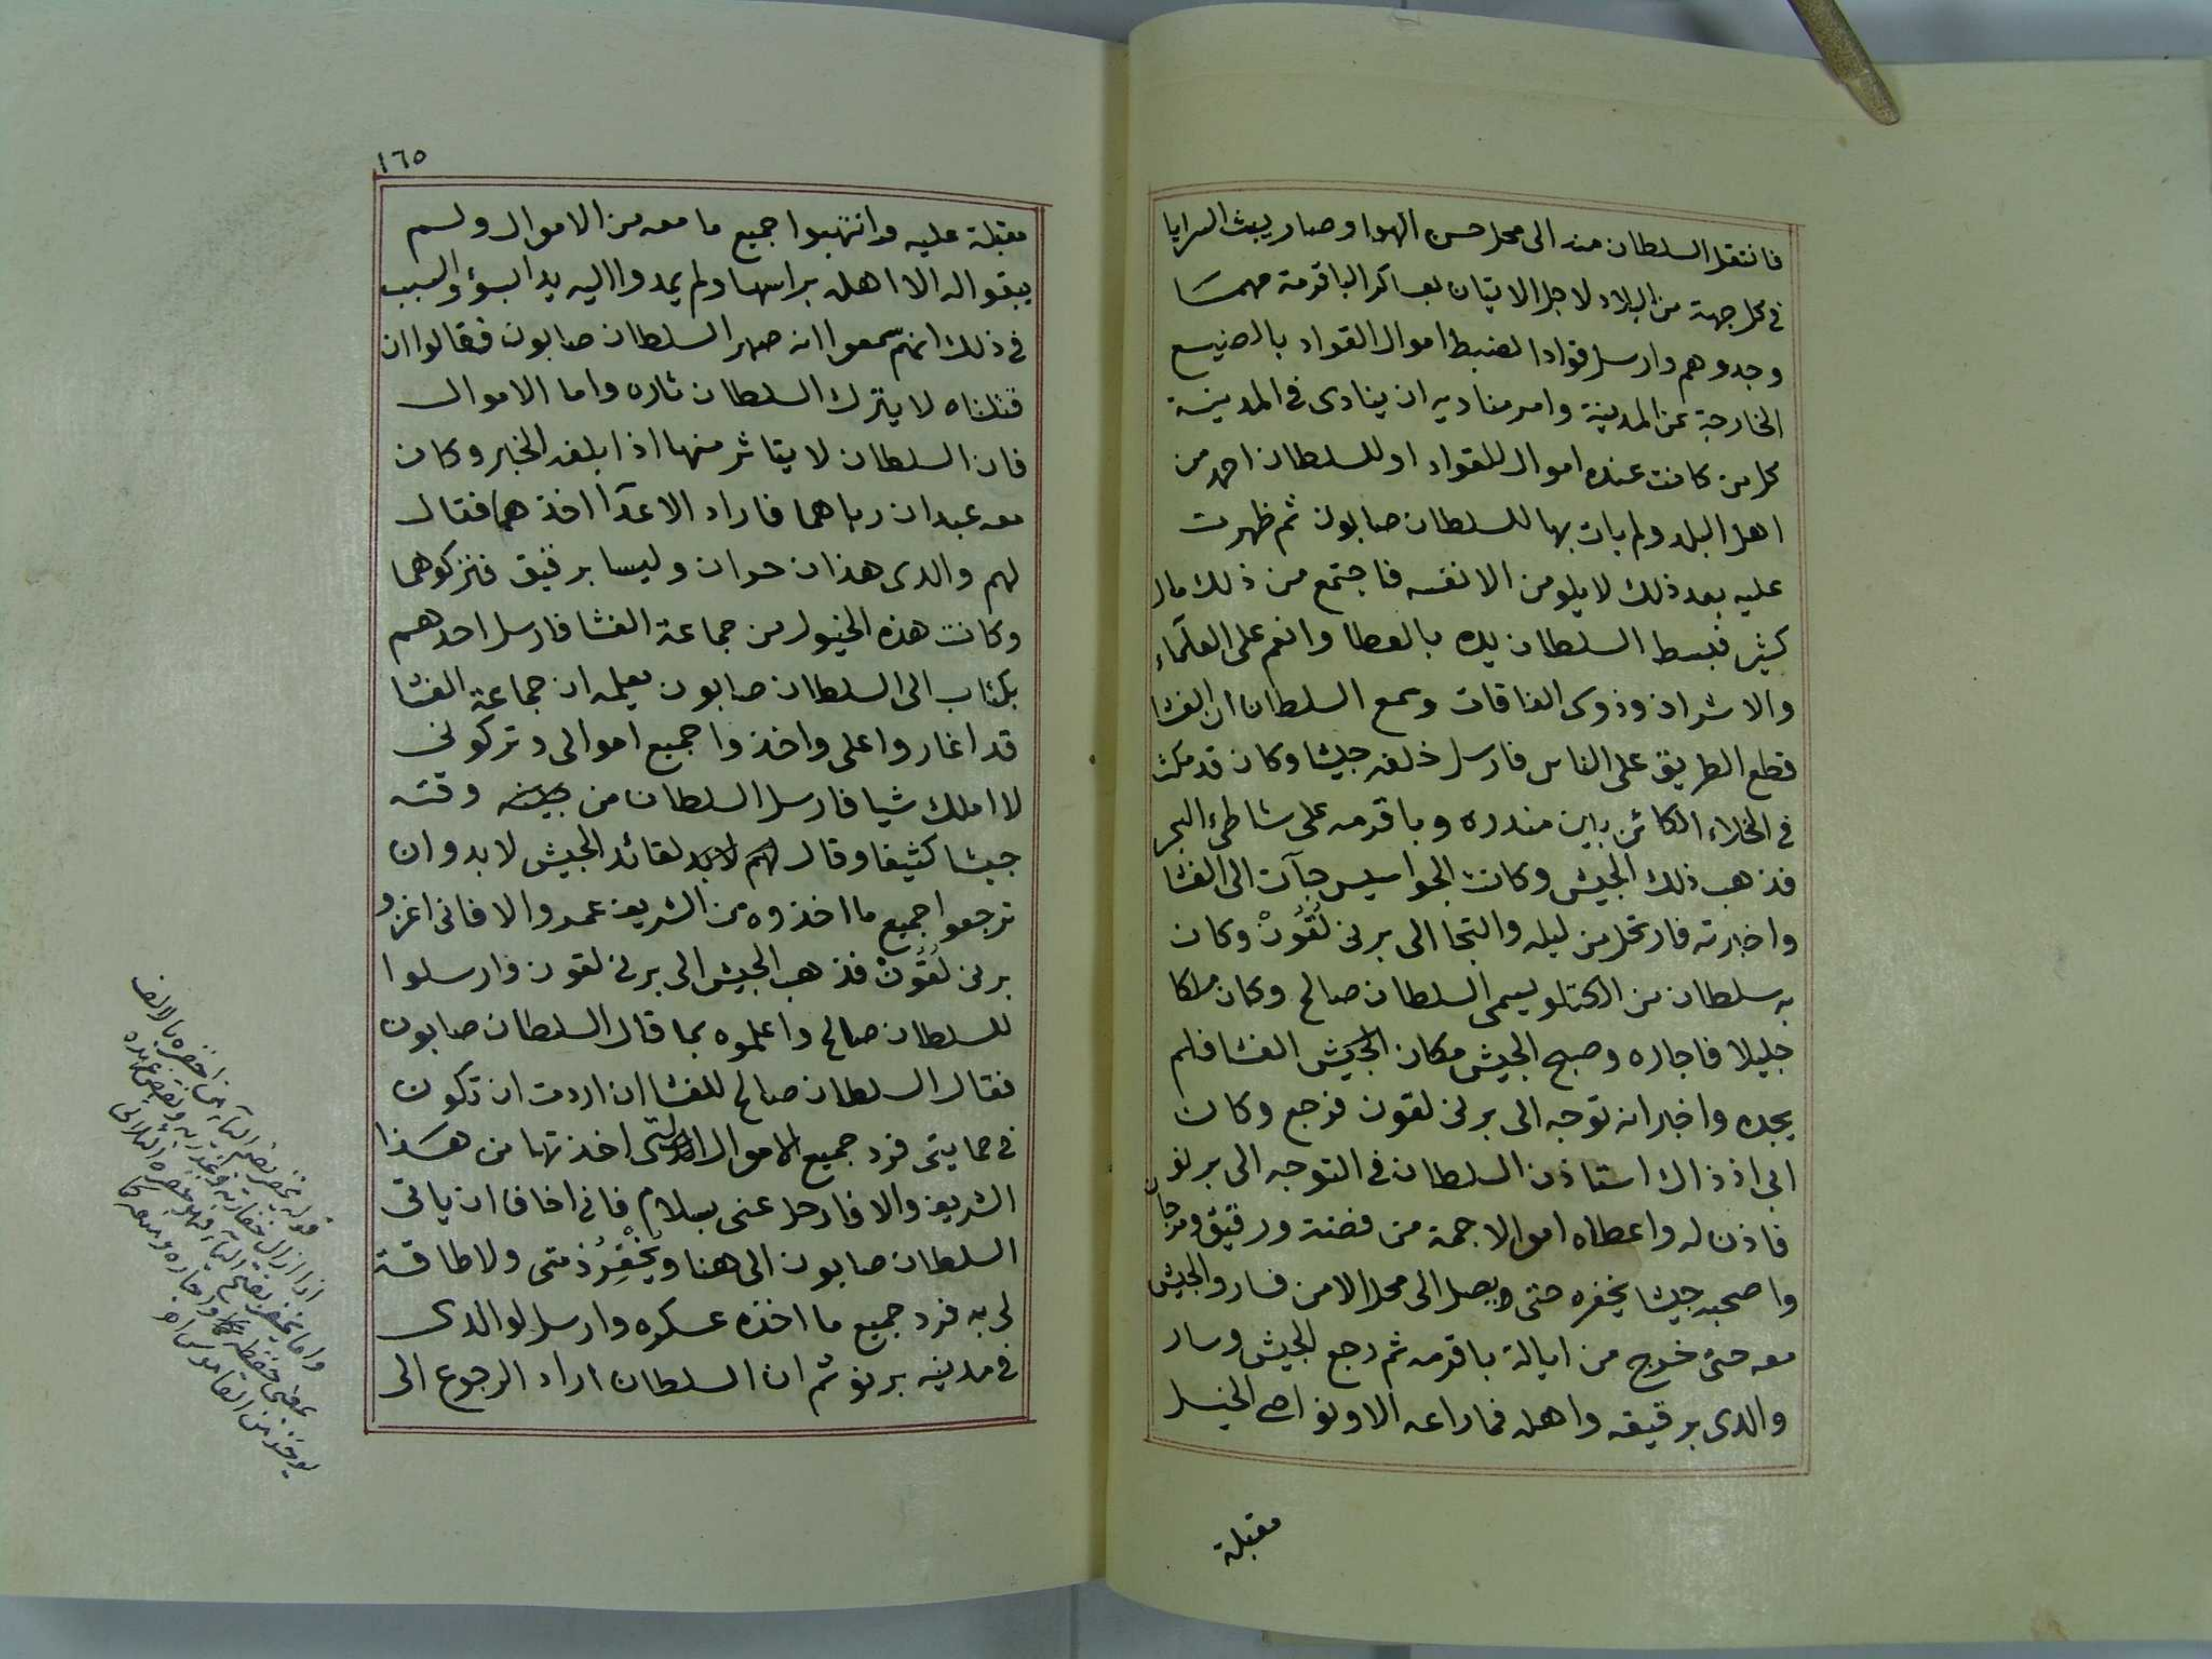 فانتقل السلطان منه الى محل حسن الهوا وصار يبث السرايا
فى كل جهة من البلاد لاجل الاتيان بعساكر الباقرمة مهمسا
وجدوهم وارسل قوادا لضبط اموال القواد بالضيع
الخارجة عن المدينة وامر مناديه ان ينادى فى المدينة
كل من كانت عنده اموال للقواد او للسلطان احمد من
اهل البلد ولم يات بها للسلطان صابون ثم ظهرت
عليه بعد ذلك لا يلومن الا نفسه فاجتمع من ذلك مال
كثير فبسط السلطان يده بالعطا وانعم على العلماء
والاشراف وذوى الفاقات وسمع السلطان ان الفشا
قطع الطريق على الناس فارسل خلفه جيشا وكان قد مكث
فى الخلاء الكائن باين مندره وباقرمه على شاطئ البحر
فذهب ذلك الجيش وكانت الجواسيس جآت الى الفشا
واخبرته فارتحل من ليله والتجا الى برنى لُقُونْ وكان
به سلطان من الكتلو يسمى السلطان صالح وكان ملكا
جليلا فاجاره وصبح الجيش مكان الجيش الفشا فلم
يجده واخبر انه توجه الى برنى لقون فرجع وكان
ابى اذ ذاك استاذن السلطان فى التوجه الى برنو
فاذن له واعطاه اموالا جمة من فضة ورقيق ومرجان
واصحبه جيشا يخفره حتى ويصل الى محل الامن فسار والجيش
معه حتى خرج من ايالة باقرمه ثم رجع الجيش وسار
والدى برقيقه واهله فما راعه الا ونواصى الخيل
مقبلة
١٦٥
مقبلة عليه فدانتهبوا جميع ما معه من الاموال ولم
يبقوا له الا اهله براسها ولم يمدوا اليه يدا بسؤ والسبب
فى ذلك انهم سمعوا انه صهر السلطان صابون فقالوا ان
قتلناه لا يترك السلطان ثاره واما الاموال
فان السلطان لا يتاثر منها اذا بلغه الخبر وكان
معه عبدان رباهما فاراد الاعدآ اخذهما فقال
لهم والدى هذان حران وليسا برقيق فتركوهما
وكانت هذه الخيول من جماعة الفشا فارسل احدهم
بكتاب الى السلطان صابون يعلمه ان جماعة الفشا
قد اغاروا على واخذوا جميع اموالى وتركونى
لا املك شيا فارسل السلطان من وقته
جيشا كثيفا وقال لهم لابد لقائد الجيش لابد وان
ترجعوا جميع ما اخذوه من الشريف عمر والا فانى اغزو
برنى لُقُونْ فذهب الجيش الى برنى لقون فارسلوا
للسلطان صالح واعلموه بما قال السلطان صابون
فقال السلطان صالح للفشا ان اردت ان تكون
فى حمايتى فرد جميع الاموال التى اخذتها من هذا
الشريف والا فارحل عنى بسلام فانى اخاف ان ياتى
السلطان صابون الى هنا ويُخْفِرُ ذمتى ولا طاقة
لى به فرد جميع ما اخذه عسكره وارسل لوالدى
فى مدينه برنو ثم ان السلطان اراد الرجوع الى
قوله يخفر بضم اليآء من اخفره بالالف
اذا ازال خفارته وغدر به ونقض عهده
واما يخفر بفتح اليآء فهو خفره الثلاثى
بمعنى حفظه واجاره ومنعه كما
يوخذ من القاموس اهـ